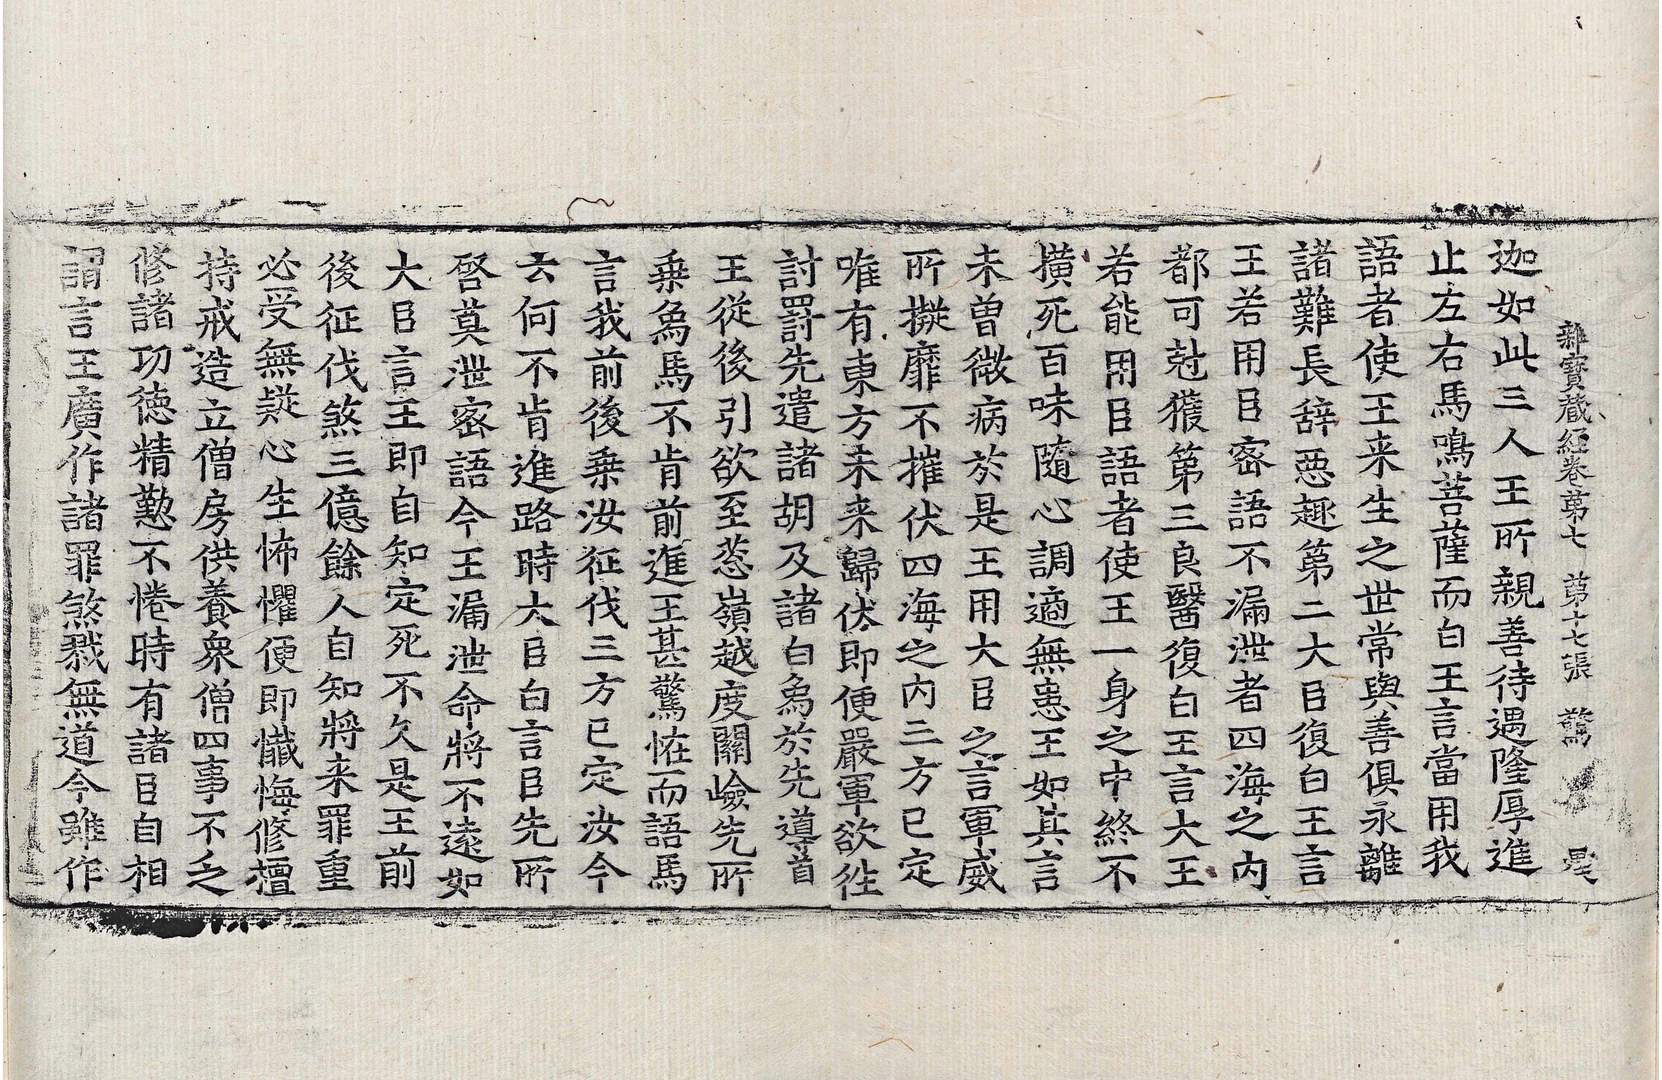 雜寶蔵経卷苐七 苐十七張 驚
迦如此三人王所親善待遇隆厚進
止左右馬鳴菩薩而白王言當用我
語者使王来生之世常與善俱永離
諸難長辞惡趣第二大臣復白王言
王若用臣密語不漏泄者四海之内
都可尅獲第三良醫復白王言大王
若能用臣語者使王一身之中終不
横死百味隨心調適無患王如其言
未曽微病於是王用大臣之言軍威
所擬靡不摧伏四海之内三方已定
唯有東方未来歸伏即便嚴軍欲往
討罰先遣諸胡及諸白象於先導首
王從後引欲至葱嶺越度關嶮先所
乗象馬不肯前進王甚驚恠而語馬
言我前後乗汝征伐三方已定汝今
云何不肯進路時大臣白言臣先所
啓莫泄密語今王漏泄命將不遠如
大臣言王即自知定死不久是王前
後征伐煞三億餘人自知將来罪重
必受無疑心生怖懼便即懴悔修檀
持戒造立僧房供養衆僧四事不乏
修諸功徳精懃不惓時有諸臣自相
謂言王廣作諸罪煞戮無道今雖作